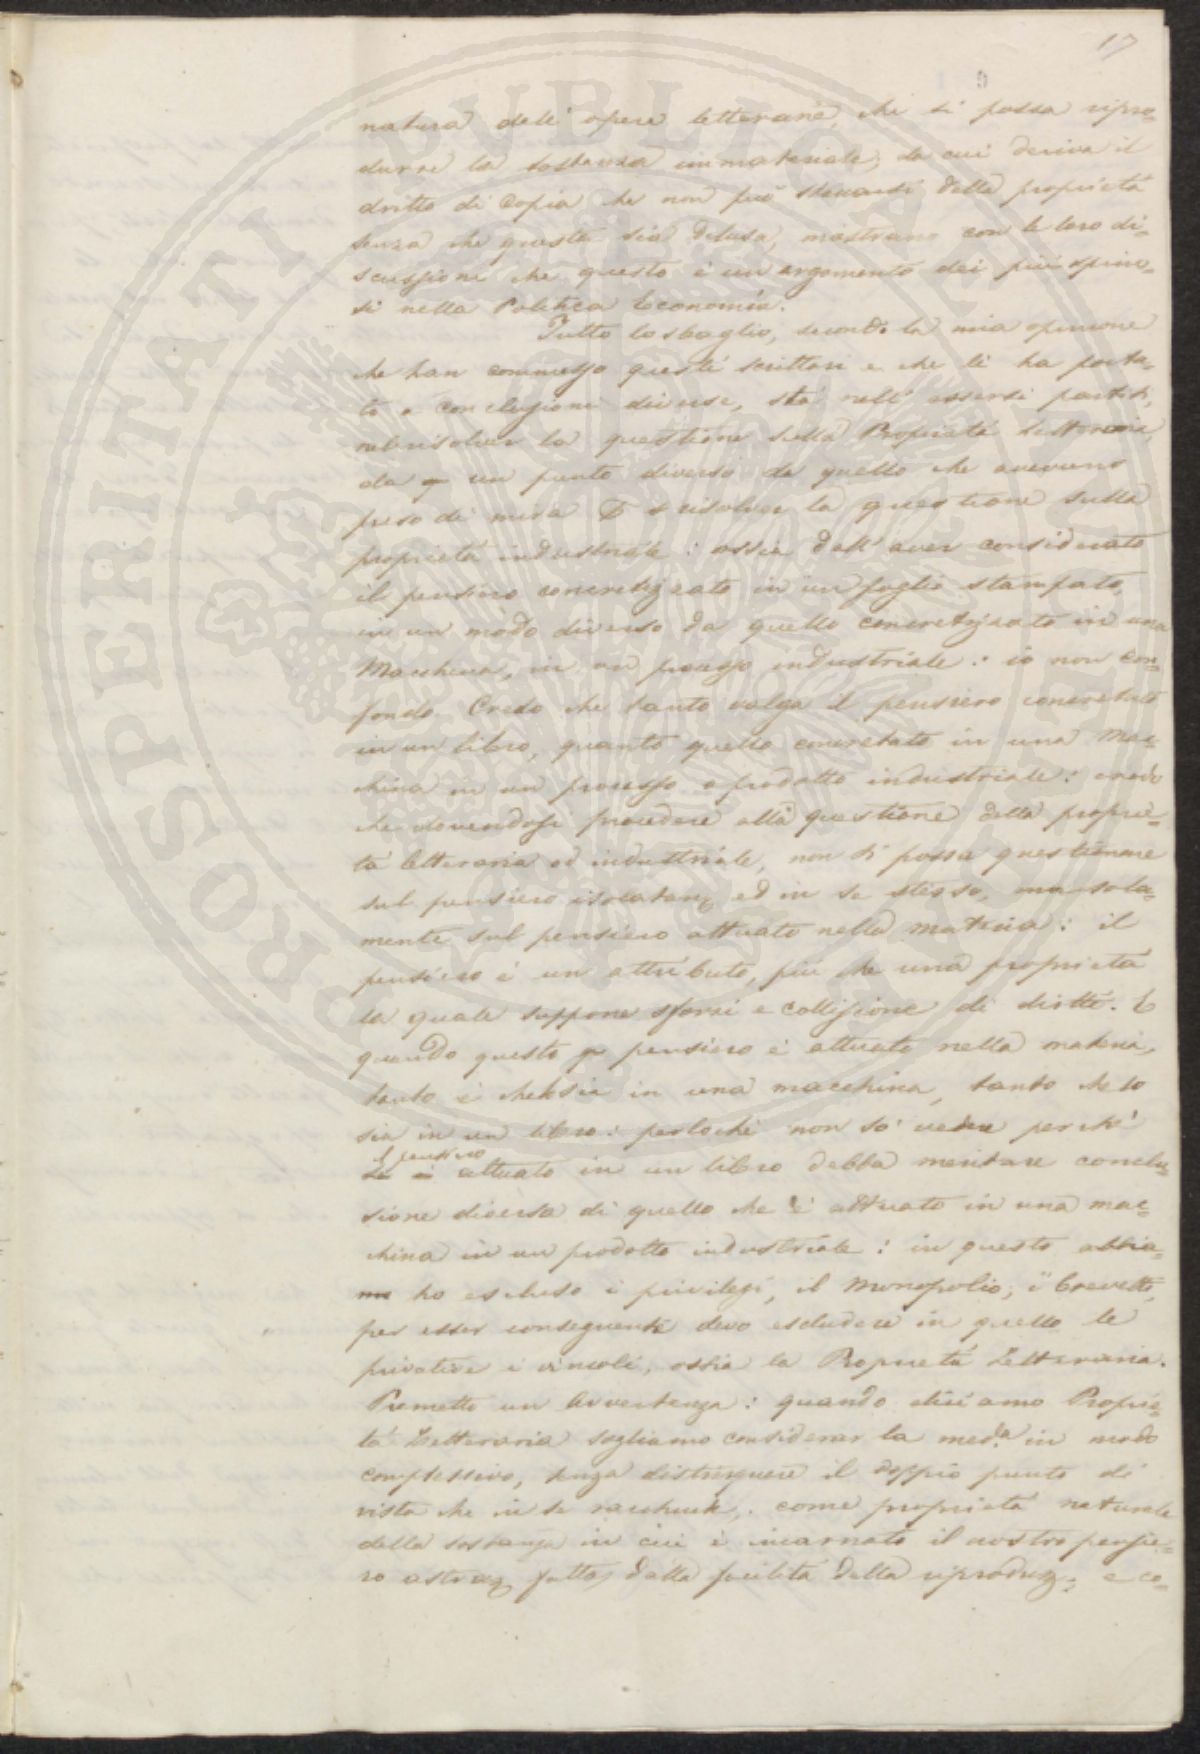 17
9
natura dell' opere letterarie, che si possa ripro=
durre la sostanza immateriale, da cui deriva il
dritto di Copia che non può staccarsi dalla proprietà
senza che questa sia delusa, mostrano con le loro di=
scussioni che questo è un argomento dei più spino=
si nella Politica Economia.
Tutto lo sbaglio, secondo la mia opinione
che han commesso questi scrittori e che li ha porta=
to a conclusioni diverse, stà nell' essersi partiti,
nel risolver la questione sulla Proprietà Letteraria
da un punto diverso da quello che avevano
preso di mira a risolver la questione sulla
proprietà industriale: ossia dall' aver considerato
il pensiero concretizzato in un foglio stampato,
in un modo diverso da quello concretizzato in una
Macchina, in un processo industriale: io non con=
fondo. Credo che tanto valga il pensiero concretato
in un libro, quanto quello concretato in una mac=
china in un processo o prodotto industriale: credo
che dovendosi procedere alla questione della proprie=
tà letteraria ed industriale, non si possa questionare
sul pensiero isolatam.e ed in se stesso, ma sola=
mente sul pensiero attuato nella materia: il
pensiero è un attributo, più che una proprietà
la quale suppone sforzi e collisione di diritti. E
quando questo pensiero è attuato nella materia,
tanto è che lo sia in una macchina, tanto che lo
sia in un libro: perlochè non sò vedere perchè
il pensiero
attuato in un libro debba meritare conclu=
sione diversa di quello che è attuato in una mac=
china in un prodotto industriale: in questo abbia=
mo ho escluso i privilegi, il Monopolio, i Brevetti,
per esser conseguente devo escludere in quello le
privative i vincoli, ossia la Proprietà Letteraria.
Premetto un Avvertenza: quando diciamo Proprie=
tà Letteraria sogliamo considerar la med.a in modo
complessivo, senza distinguere il doppio punto di
vista che in se racchiude,: come proprietà naturale
della sostanza in cui è incarnato il nostro pensie=
ro astraz.e fatta dalla facilità della riproduz.e: e co=